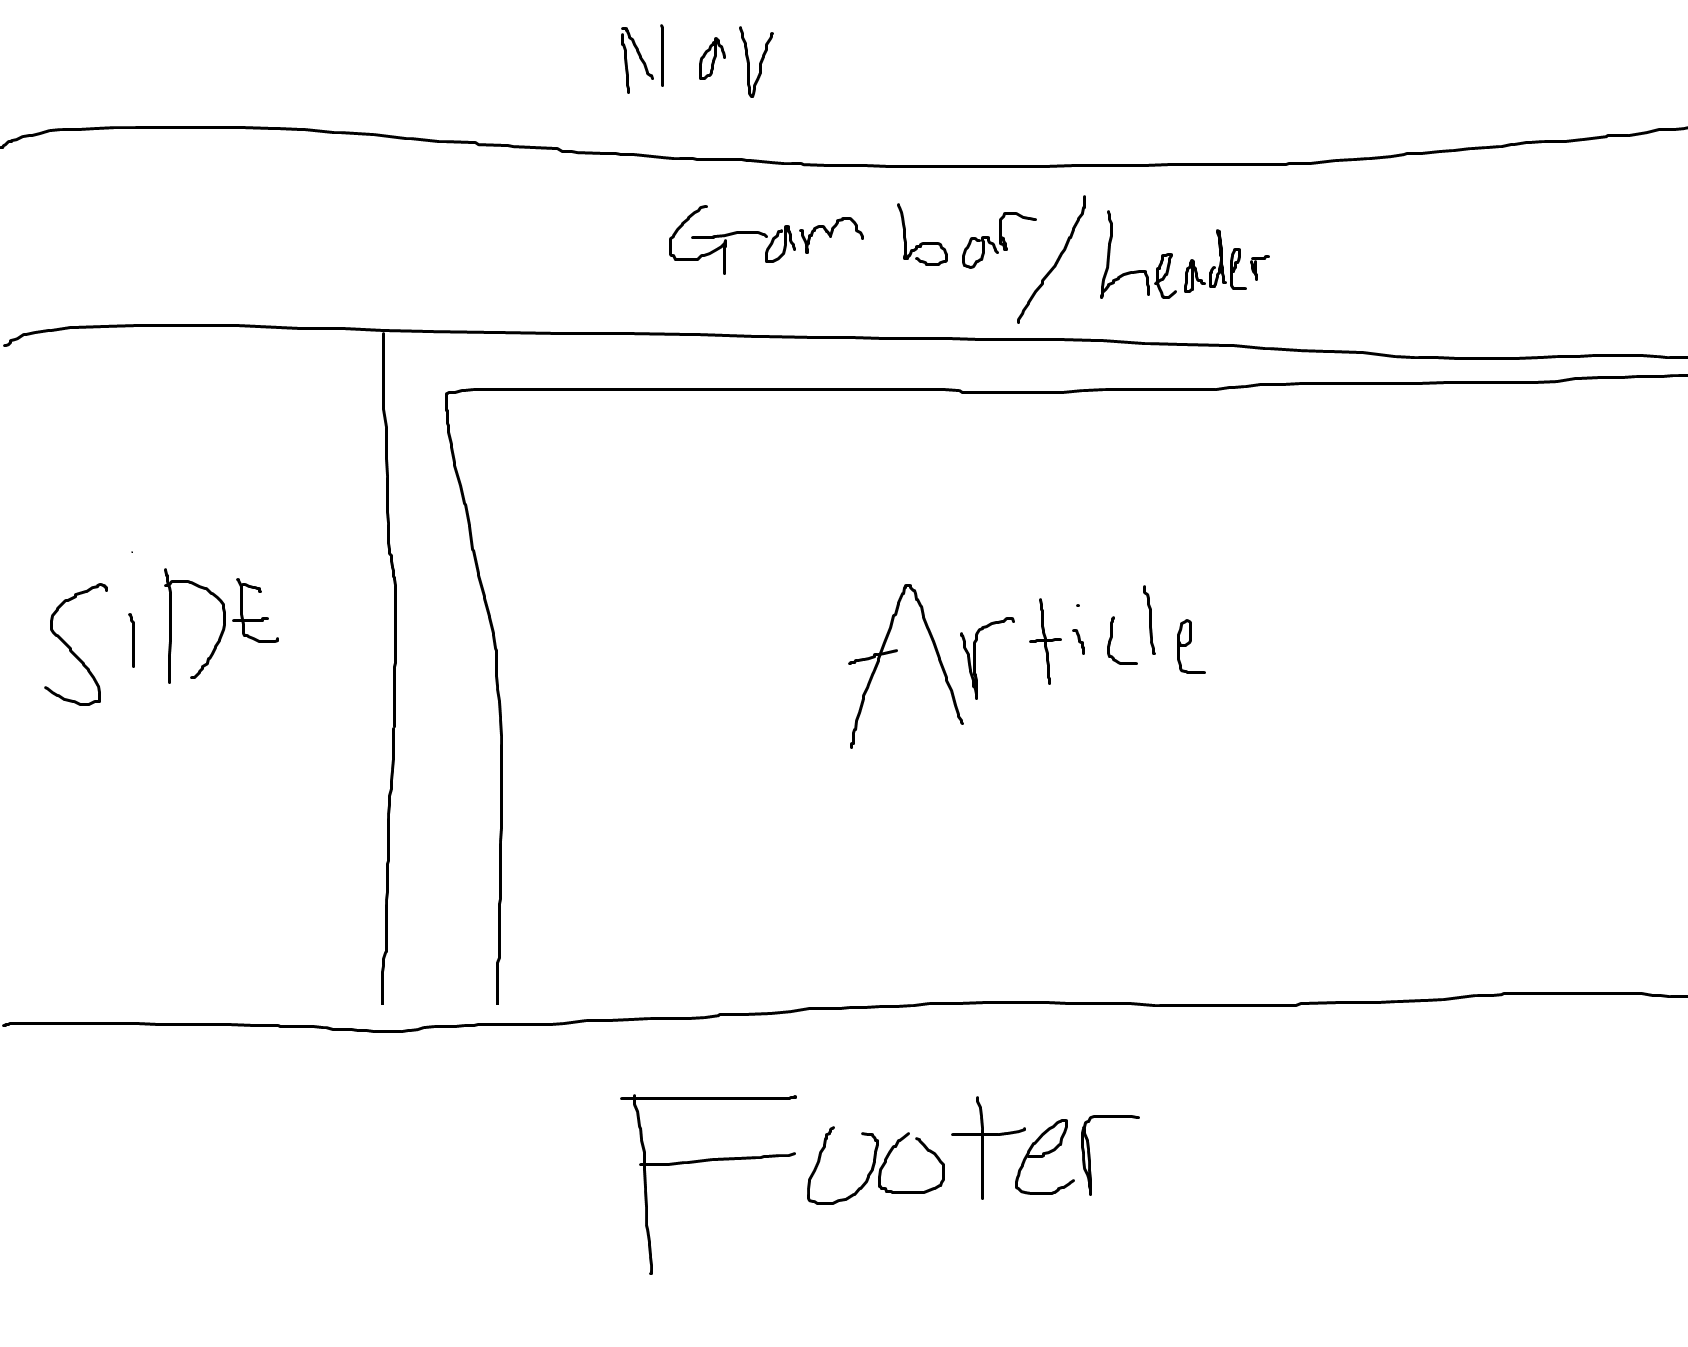 Nav
Gambar/header
SiDE
Article
Footer